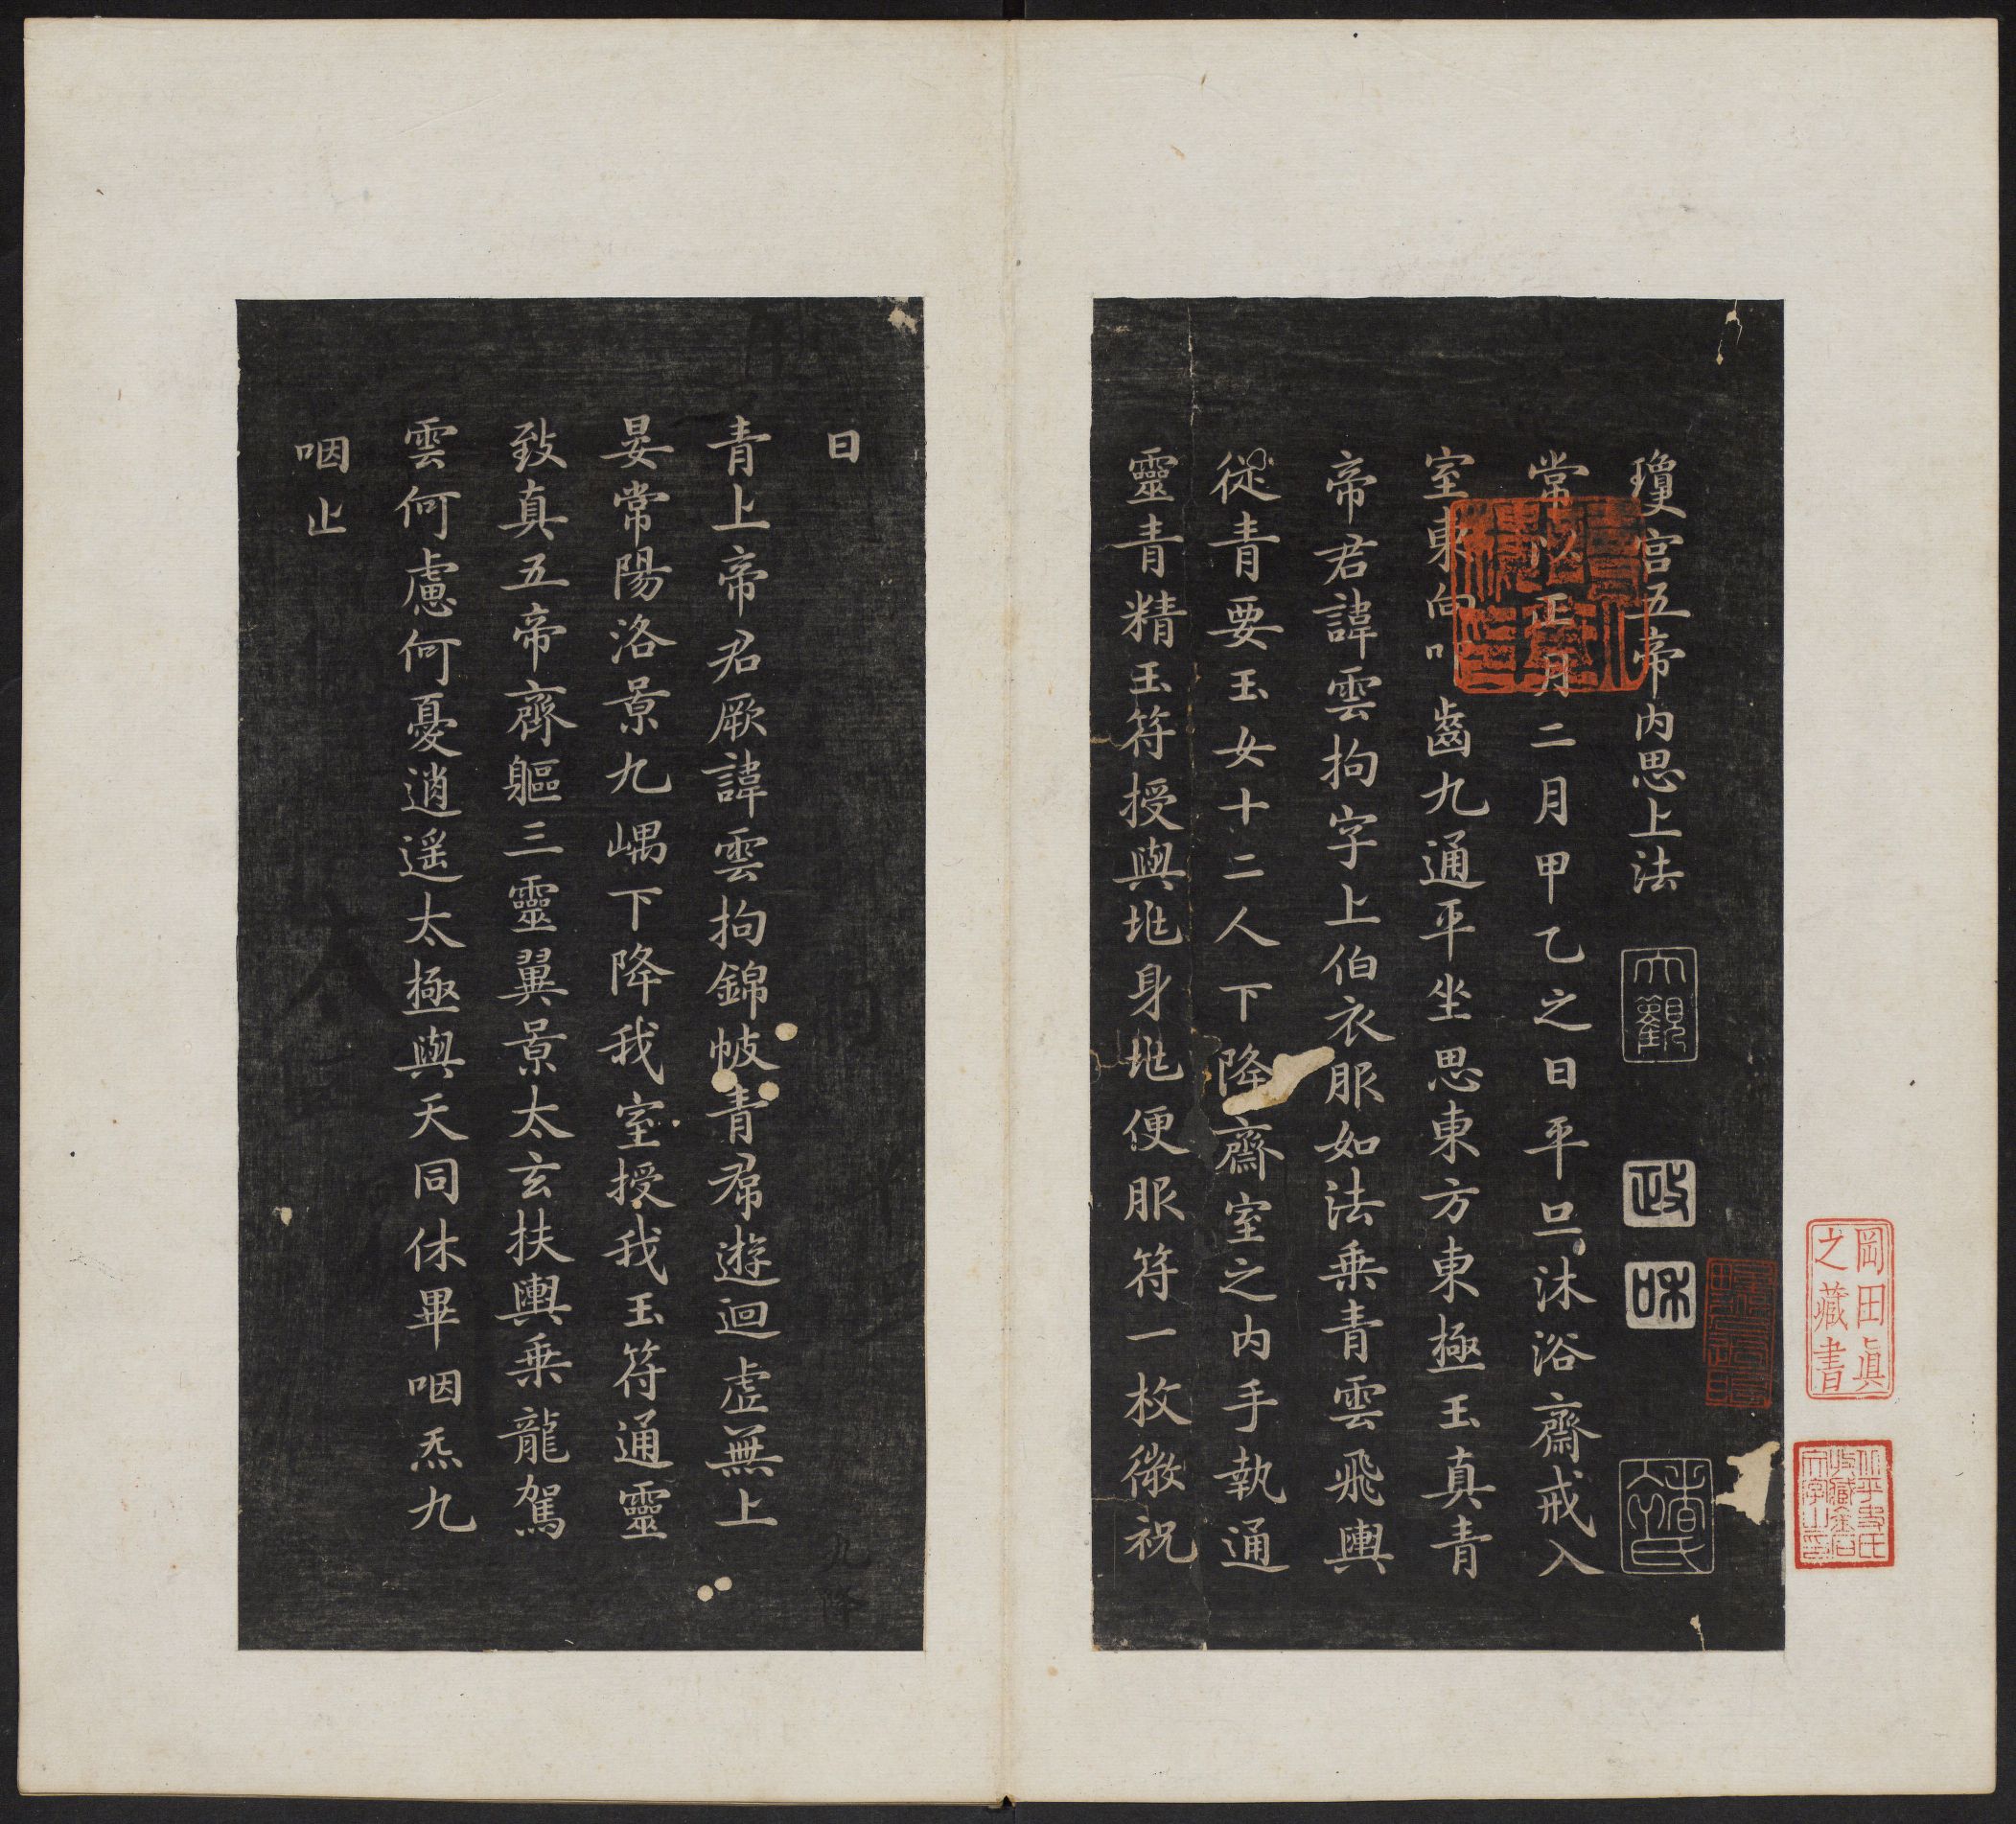 瓊宮五帝内思上法
大觀
政
和
常以正月二月甲乙之日平旦沐浴齋戒入
室東向叩齒九通平坐思東方東極玉真青
帝君諱雲拘字上伯衣服如法乗青雲飛輿
從青要玉女十二人下降齋室之内手執通
靈青精玉符授與兆身兆便服符一枚微祝
曰
青上帝君厥諱雲拘錦帔青帬遊迴虛無上
晏常陽洛景九嵎下降我室授我玉符通靈
致真五帝齊軀三靈翼景太玄扶輿乗龍駕
雲何慮何憂逍遥太極與天同休畢咽炁九
咽止
岡田眞
之藏書